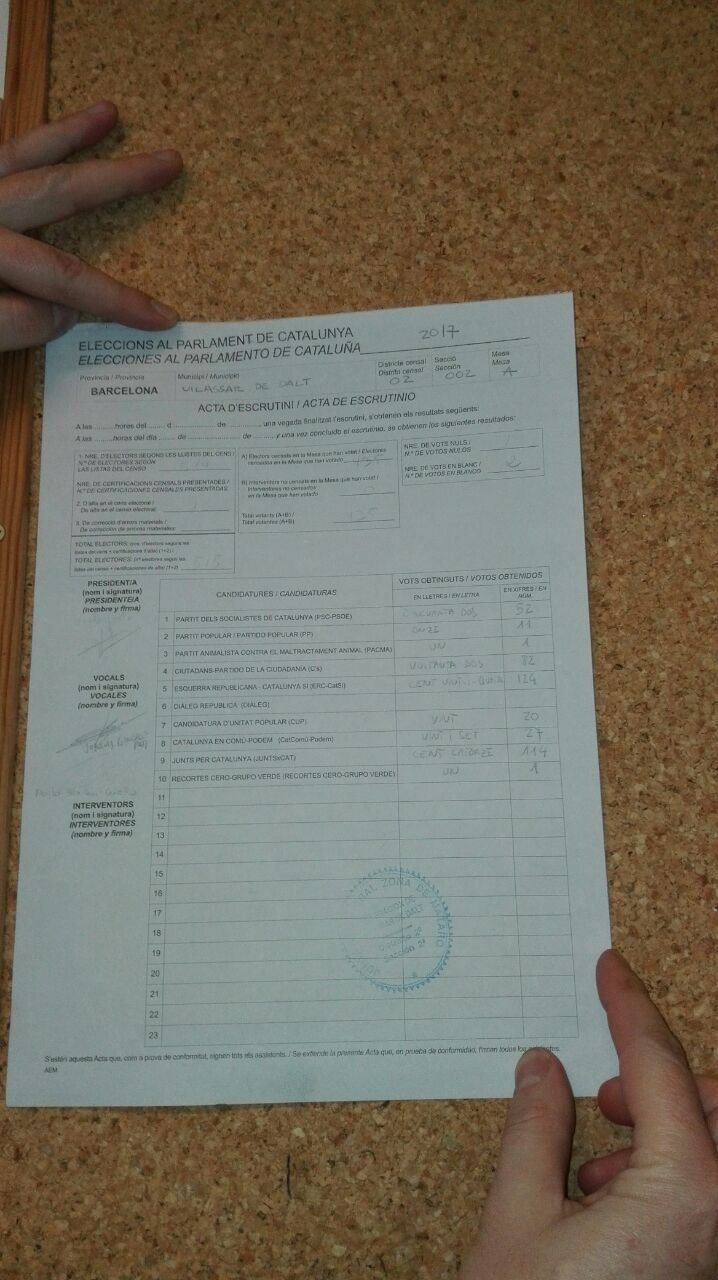 ELECCIONS AL PARLAMENT DE CATALUNYA
ELECCIONES AL PARLAMENTO DE CATALUÑA 2017
Província / Provincia
BARCELONA
Municipi / Municipio
VILASSAR DE DALT
Districte censal
Distrito censal
02
Secció
Sección
002
Mesa
Mesa
A
ACTA D'ESCRUTINI / ACTA DE ESCRUTINIO
A les ........ hores del ........ d ........ de ........, una vegada finalitzat l'escrutini, s'obtenen els resultats següents:
A las ........ horas del día ........ de ........ de ........ y una vez concluido el escrutinio, se obtienen los siguientes resultados:
1. NRE. D'ELECTORS SEGONS LES LLISTES DEL CENS /
N.º DE ELECTORES SEGÚN
LAS LISTAS DEL CENSO
NRE. DE CERTIFICACIONS CENSALS PRESENTADES /
N.º DE CERTIFICACIONES CENSALES PRESENTADAS
2. D'alta en el cens electoral /
De alta en el censo electoral
3. De correcció d'errors materials /
De corrección de errores materiales
TOTAL ELECTORS
TOTAL ELECTORES
A) Electors censats en la Mesa que han votat / Electores
censados en la Mesa que han votado
B) Interventors no censats en la Mesa que han votat /
Interventores no censados
en la Mesa que han votado
Total votants (A+B) /
Total votantes (A+B)
NRE. DE VOTS NULS /
N.º DE VOTOS NULOS
NRE. DE VOTS EN BLANC /
N.º DE VOTOS EN BLANCO 2
PRESIDENT/A
(nom i signatura)
PRESIDENTE/A
(nombre y firma)
VOCALS
(nom i signatura)
VOCALES
(nombre y firma)
INTERVENTORS
(nom i signatura)
INTERVENTORES
(nombre y firma)
CANDIDATURES / CANDIDATURAS
VOTS OBTINGUTS / VOTOS OBTENIDOS
EN LLETRES / EN LETRA
EN XIFRES / EN NÚM.
1 PARTIT DELS SOCIALISTES DE CATALUNYA (PSC-PSOE) CINQUANTA DOS 52
2 PARTIT POPULAR / PARTIDO POPULAR (PP) ONZE 11
3 PARTIT ANIMALISTA CONTRA EL MALTRACTAMENT ANIMAL (PACMA) UN 1
4 CIUTADANS-PARTIDO DE LA CIUDADANÍA (C's) VUITANTA DOS 82
5 ESQUERRA REPUBLICANA - CATALUNYA SÍ (ERC-CatSí) CENT VINT-I-QUATRE 124
6 DIÀLEG REPUBLICÀ (DIÀLEG)
7 CANDIDATURA D'UNITAT POPULAR (CUP) VINT 20
8 CATALUNYA EN COMÚ-PODEM (CatComú-Podem) VINT I SET 27
9 JUNTS PER CATALUNYA (JUNTSxCAT) CENT CATORZE 114
10 RECORTES CERO-GRUPO VERDE (RECORTES CERO-GRUPO VERDE) UN 1
11
12
13
14
15
16
17
18
19
20
21
22
23
ZONA DE MATARÓ
S'estén aquesta Acta que, com a prova de conformitat, signen tots els assistents. / Se extiende la presente Acta que, en prueba de conformidad, firman todos los asistentes.
AEM